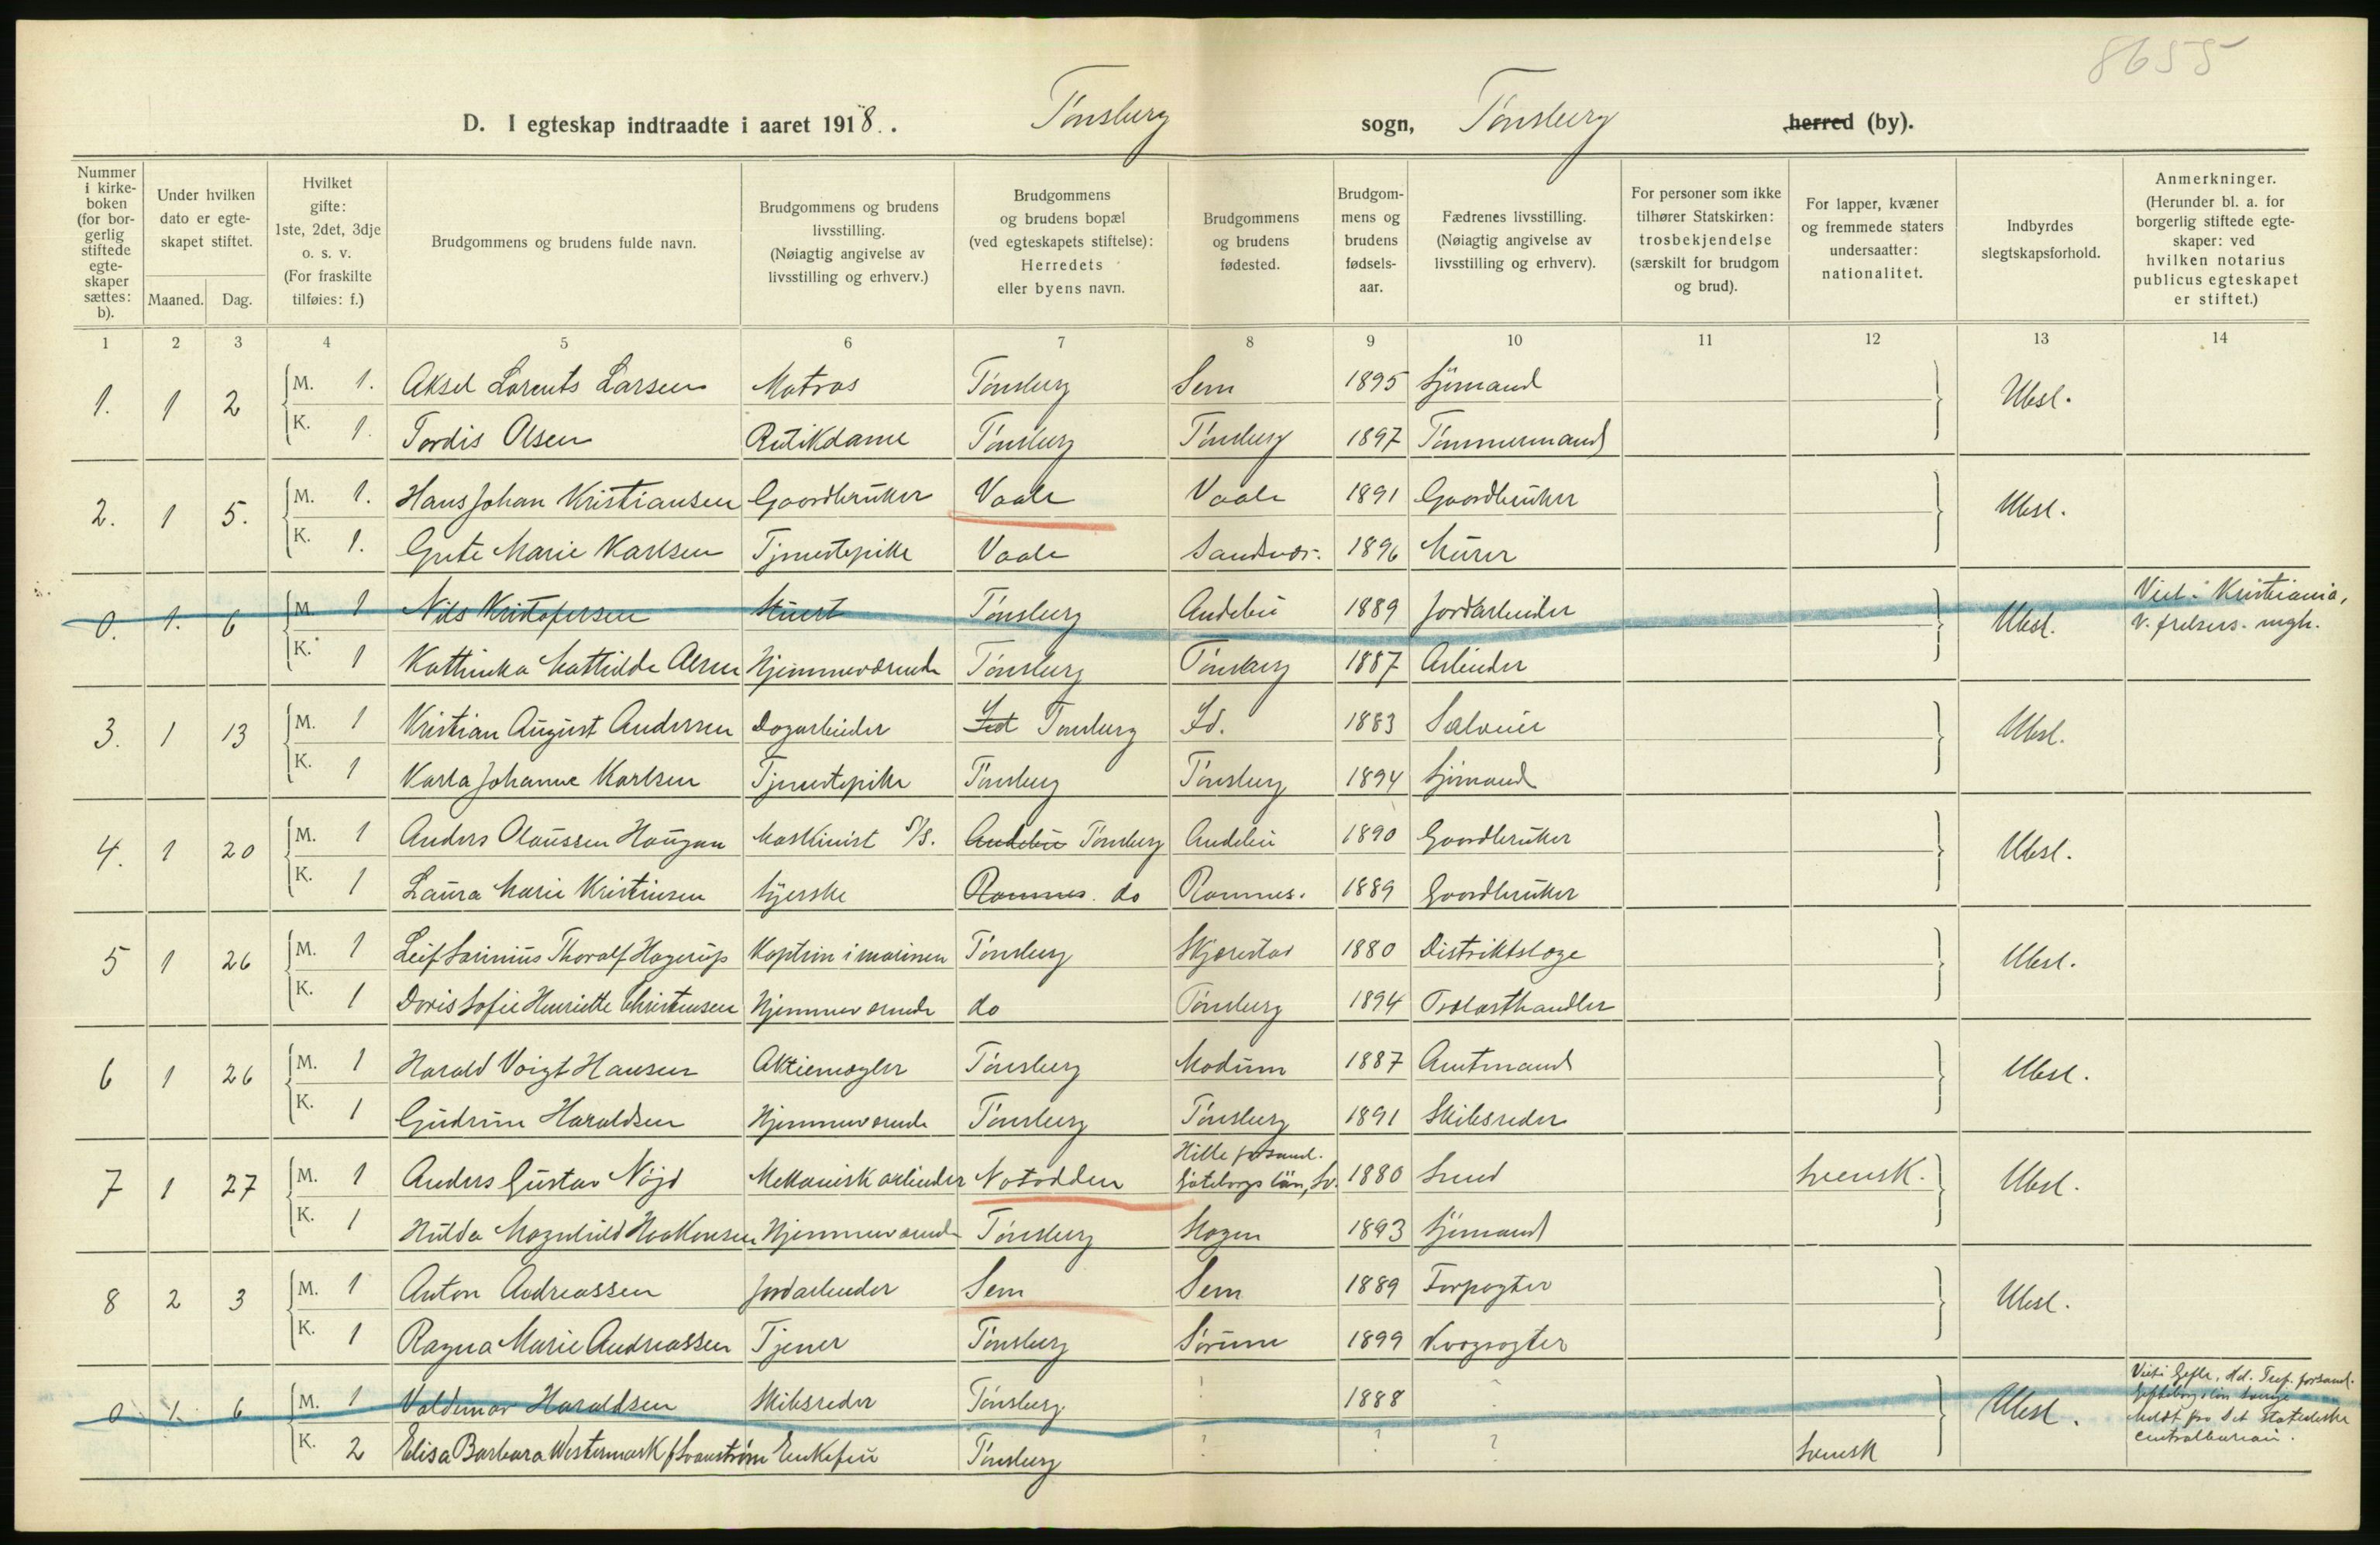 8655
D. I egteskap indtraadte i aaret 1918. Tønsberg sogn, Tønsberg herred (by).
Nummer i kirkeboken (for borgerlig stiftede egteskaper sættes: b).
Under hvilken dato er egteskapet stiftet.
Maaned. Dag.
Hvilket gifte: 1ste, 2det, 3dje o. s. v. (For fraskilte tilføies: f.)
Brudgommens og brudens fulde navn.
Brudgommens og brudens livsstilling. (Nøiagtig angivelse av livsstilling og erhverv.)
Brudgommens og brudens bopæl (ved egteskapets stiftelse): Herredets eller byens navn.
Brudgommens og brudens fødested.
Brudgommens og brudens fødselsaar.
Fædrenes livsstilling. (Nøiagtig angivelse av livsstilling og erhverv).
For personer som ikke tilhører Statskirken: trosbekjendelse (særskilt for brudgom og brud).
For lapper, kvæner og fremmede staters undersaatter: nationalitet.
Indbyrdes slegtskapsforhold.
Anmerkninger. (Herunder bl. a. for borgerlig stiftede egteskaper: ved hvilken notarius publicus egteskapet er stiftet.)
1 2 3 4 5 6 7 8 9 10 11 12 13 14
1. 1 2 M. 1. Aksel Lorents Larsen Matros Tønsberg Sem 1895 Sjømand Ubsl.
K. 1. Tordis Olsen Butikdame Tønsberg Tønsberg 1897 Tømmermand
2. 1 5. M. 1. Hans Johan Kristiansen Gaardbruker Vaale Vaale 1891 Gaardbruker Ubsl.
K. 1. Grete Marie Karlsen Tjenestepike Vaale Sandsvær. 1896 Murer
0. 1. 6 M. 1 Nils Kristofersen Stuert Tønsberg Andebu 1889 Jordarbeider Ubsl. Viet i Kristiania, v. frelsers. mgh.
K. 1 Kathinka Mathilde Olsen Hjemmeværende Tønsberg Tønsberg 1887 Arbeider
3. 1 13 M. 1 Kristian August Andersen Dagarbeider Id Tønsberg Id. 1883 Ubsl.
K. 1 Karla Johanne Karlsen Tjenestepike Tønsberg Tønsberg 1894 Sjømand
4. 1 20 M. 1 Anders Olaussen Haugan Maskinist S/S. Andebu Tønsberg Andebu 1890 Gaardbruker Ubsl.
K. 1 Laura Marie Kristinsen Syerske Ramnes. do Ramnes. 1889 Gaardbruker
5 1 26 M. 1 Leif Thoralf Hagerup Kaptein i marinen Tønsberg Skjerstad 1880 Distriktslæge Ubsl.
K. 1 Doris Sofie Henriette Christensen Hjemmeværende do Tønsberg 1894 Trælasthandler
6 1 26 M. 1 Harald Voigt Hansen Aktiemægler Tønsberg Modum 1887 Amtmand Ubsl.
K. 1 Gudrun Haraldsen Hjemmeværende Tønsberg Tønsberg 1891 Skibsreder
7 1 27 M. 1 Anders Gustav Nöjd Mekanisk arbeider Notodden Hille forsaml. län, Sv. 1880 Smed Svensk. Ubsl.
K. 1 Hulda Magnhild Haakonsen Hjemmeværende Tønsberg Skagen 1893 Sjømand
8 2 3 M. 1 Anton Andreassen Jordarbeider Sem Sem 1889 Forpagter Ubsl.
K. 1 Ragna Marie Andreassen Tjener Tønsberg Sørum 1899 Forpagter
0 1. 6 M. 1 Valdemar Haraldsen Skibsreder Tønsberg ! 1888 Ubsl. Viet i Gefle, forsaml. Gefleborgs län Sverige Meldt fra det statistiske centralbureau.
K. 2 Elisa Barbara Westermark f Svanstrøm Enkefru Tønsberg ? ? ? Svensk